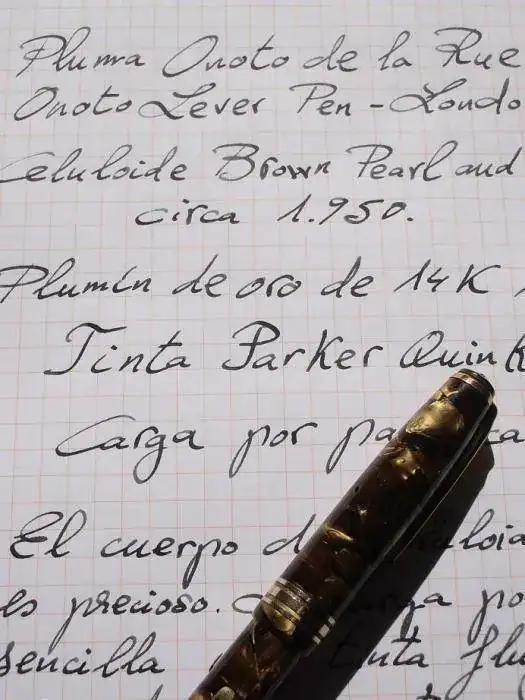 Pluma Onoto de la Rue
Onoto Lever Pen - Londo
Celuloide Brown Pearl and
circa 1.950.
Plumín de oro de 14K
Tinta Parker Quink
Carga por pa ca
El cuerpo d luloi
es precioso. rga po
sencilla tinta flu